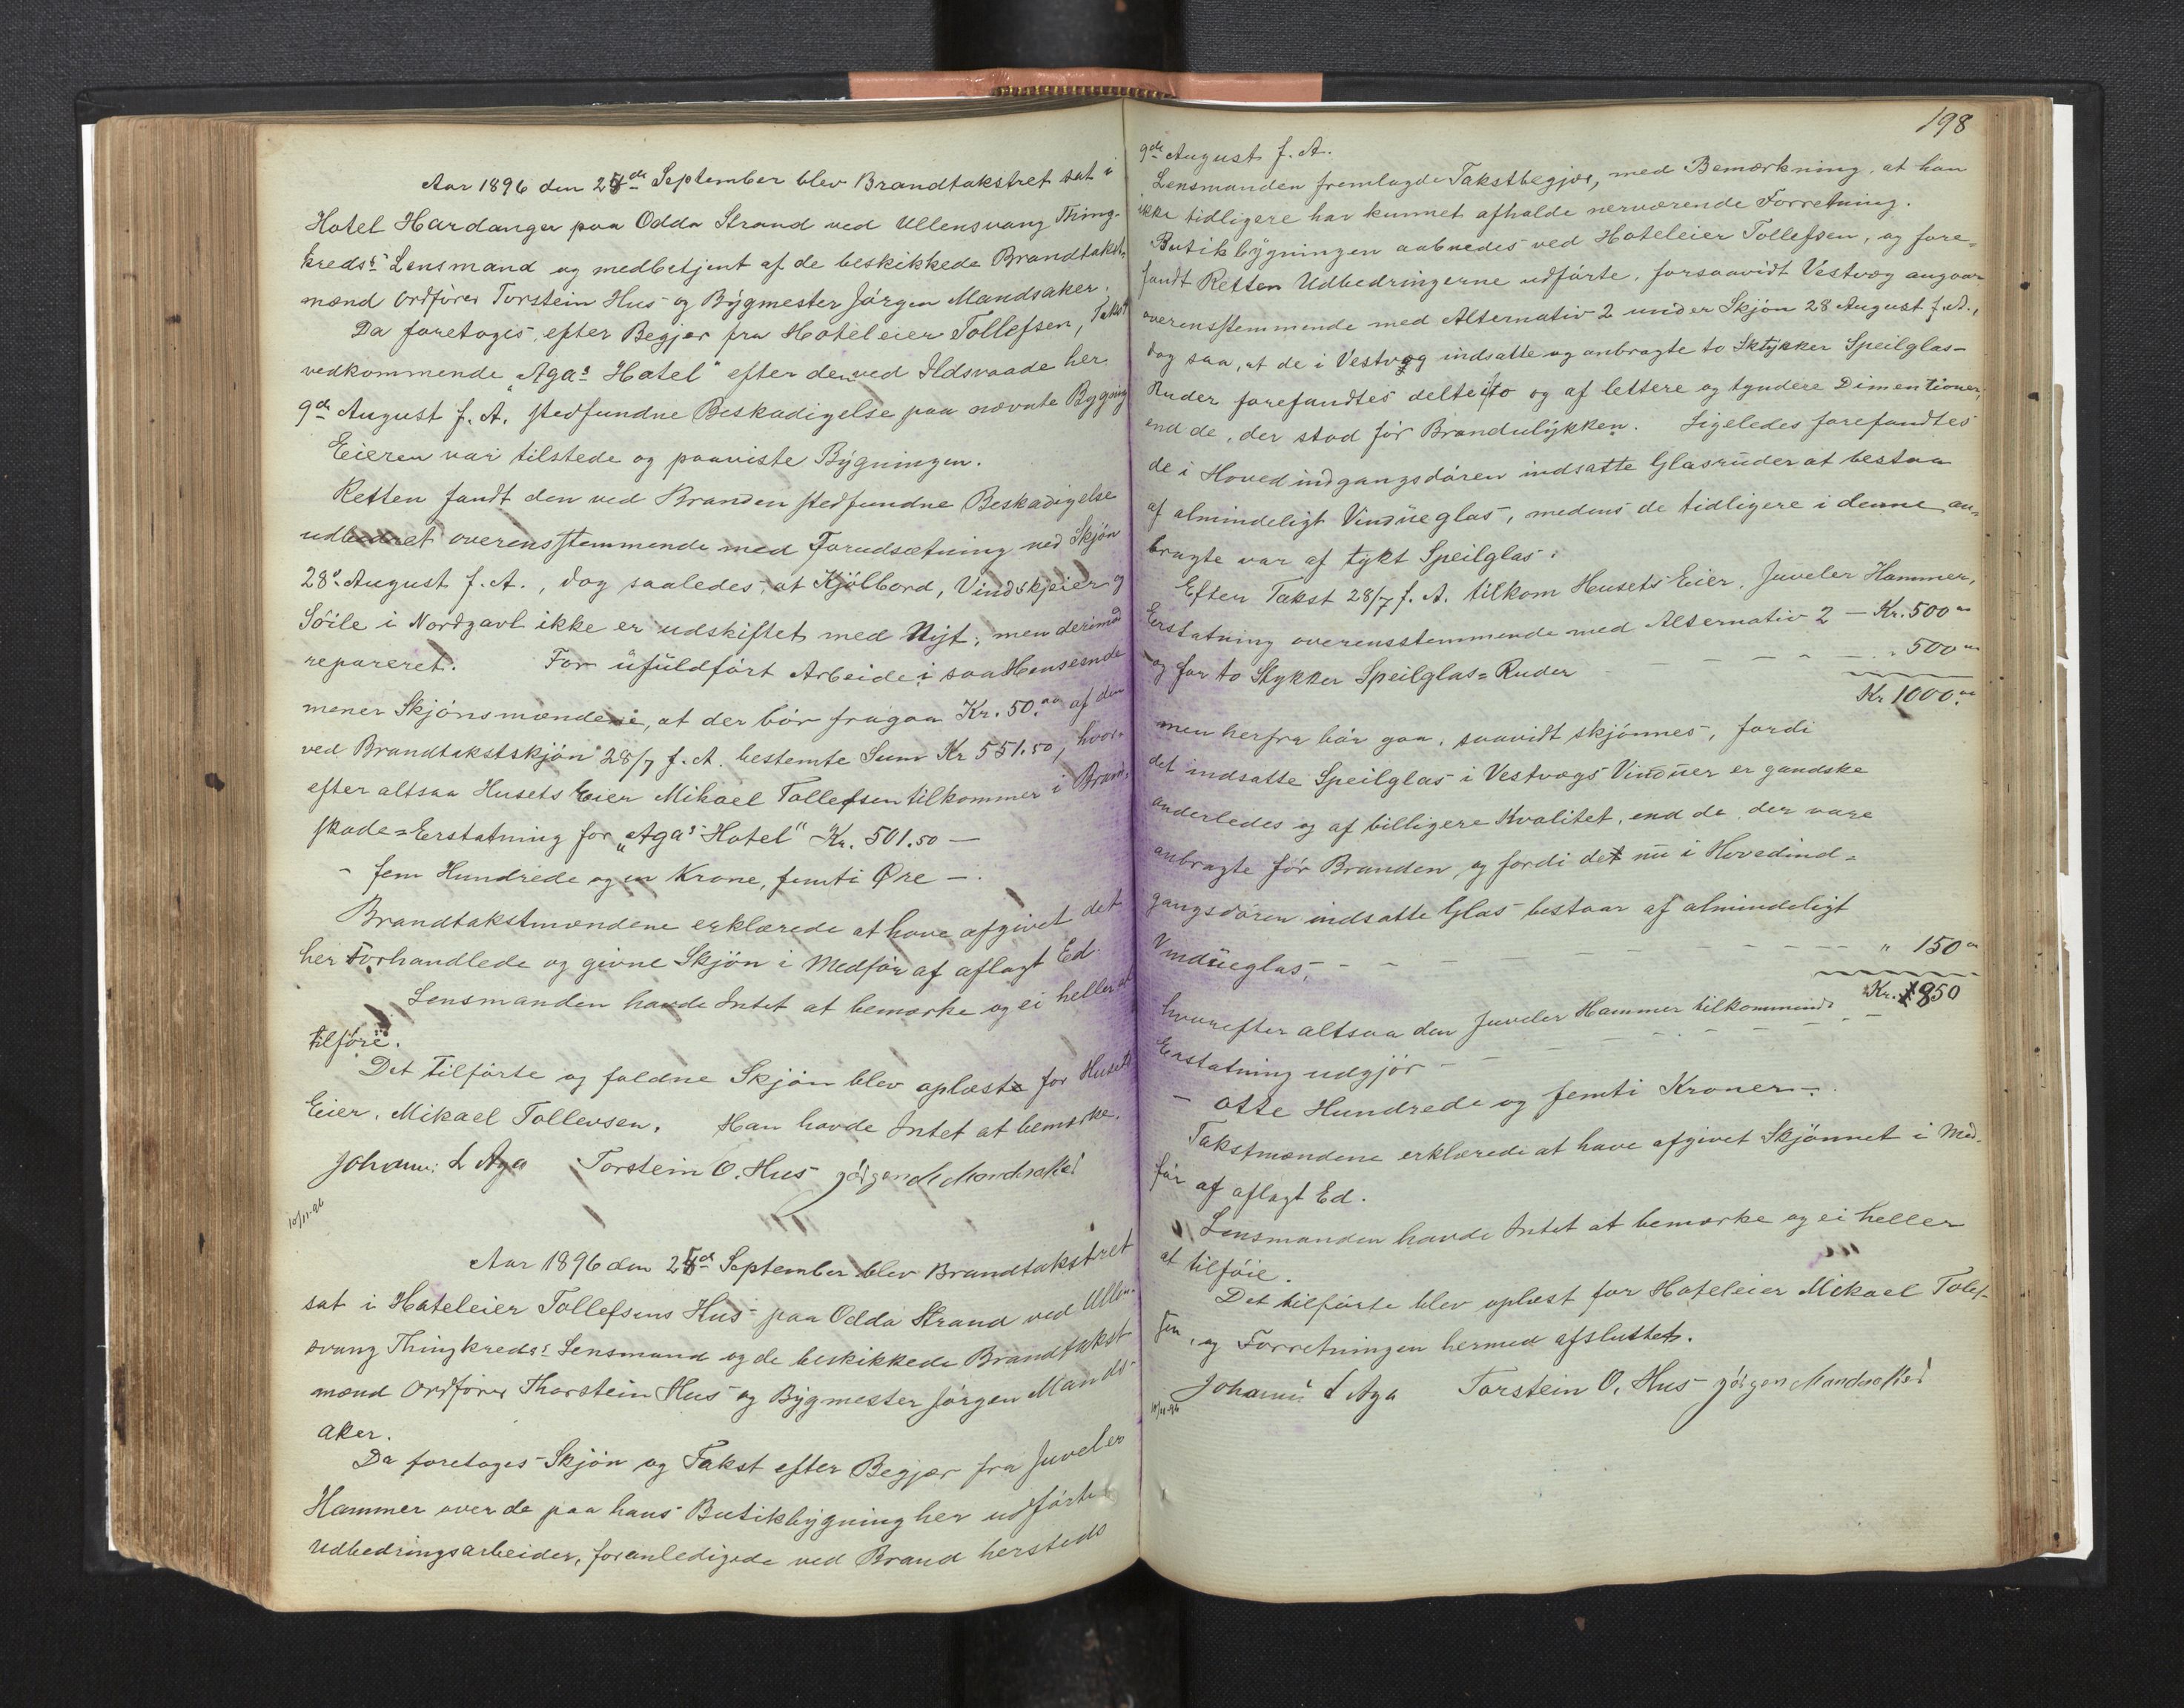 Aar 1896 den 25de September blev Brandtakstret sat i
Hotel Hardanger paa Odda Strand ved Ullensvang Thing-
kreds's Lensmand og medbetjent af de beskikkede Brandtakst-
mænd Ordfører Torstein Hus og Bygmester Jørgen Mandsaker.
Da foretoges, efter Begjær fra Hoteleier Tollefsen, Takst
vedkommende "Aga's Hotel" efter den ved Ildsvaade her
9de August f. A. stedfundne Beskadigelse paa nævnte Bygning
Eieren var tilstede og paaviste Bygningen.
Retten fandt den ved Branden stedfundne Beskadigelse
udbedret overensstemmende med Forudsætning ved Skjøn
28de August f. A., dog saaledes, at Kjølbord, Vindskjeier og
Söile i Nordgavl ikke er udskiftet med Nyt, men derimod
repareret. For ufuldført Arbeide i saa Henseende
mener Skjønsmændene, at der bör fragaa Kr. 50.00 af den
ved Brandtakstskjön 28/7 f. A. bestemte Sum Kr 551.50, hvor-
efter altsaa Husets Eier Mikael Tollefsen tilkommer i Brand-
skade=Erstatning for "Aga's Hotel" Kr. 501.50 —
- fem Hundrede og en Krone, femti Øre -.
Brandtakstmændene erklærede at have afgivet det
her Forhandlede og givne Skjön i Medför af aflagt Ed.
Lensmanden havde Intet at bemærke og ei heller at
tilföie.
Det tilførte og faldne Skjøn blev oplæst for Husets
Eier, Mikael Tollevsen. Han havde Intet at bemærke.
Johanne L Aga Torstein O. Hus Jörgen M Mandsaker
10/11-96
Aar 1896 den 25de September blev Brandtakstret
sat i Hoteleier Tollefsens Hus paa Odda Strand ved Ullen-
svang Thingkreds's Lensmand og de beskikkede Brandtakst
mænd Ordfører Thorstein Hus og Bygmester Jörgen Mands-
aker.
Da foretoges Skjön og Takst efter Begjær fra Juveler
Hammer over de paa hans Butikbygning her udførte
Udbedringsarbeider, foranledigede ved Brand hersteds
198
9de August f. A.
Lensmanden fremlagde Takstbegjær, med Bemærkning, at han
ikke tidligere har kunnet afholde nærværende Forretning.
Butikbygningen aabnedes ved Hoteleier Tollefsen, og fore-
fandt Retten Udbedringerne udførte, forsaavidt Vestvæg angaar
overensstemmende med Alternativ 2 under Skjön 28 August f. A.,
dog saa, at de i Vestvæg indsatte og anbragte to Sktykker Speilglas-
Ruder forefandtes delte i to og af lettere og tyndere Dimentioner,
end de, der stod för Brandulykken. Ligeledes forefandtes
de i Hovedindgangsdören indsatte Glasruder at bestaa
af almindeligt Vindueglas, medens de tidligere i denne an-
bragte var af tykt Speilglas.
Efter Takst 28/7 f. A. tilkom Husets Eier, Juveler Hammer,
Erstatning overensstemmende med Alternativ 2 — Kr. 500 00
og for to Stykker Speilglas=Ruder - - - - - " 500 00
Kr 1000.00
men herfra bör gaa, saavidt skjönnes, fordi
det indsatte Speilglas i Vestvægs Vinduer er gandske
anderledes og af billigere Kvalitet, end de, der vare
anbragte för Branden, og fordi det nu i Hovedind=
gangsdören indsatte Glas bestaar af almindeligt
Vindueglas, - - - - - - - - - " 150 00
hvorefter altsaa den Juveler Hammer tilkommende Kr. 850
Erstatning udgjör - - - - - -
- otte Hundrede og femti Kroner -.
Takstmændene erklærede at have afgivet Skjönnet i Med-
för af aflagt Ed.
Lensmanden havde Intet at bemærke og ei heller
at tilföie.
Det tilførte blev oplæst for Hoteleier Mikael Tolef-
sen, og Forretningen hermed afsluttet.
Johanne L Aga Torstein O. Hus Jörgen Mandsaker
10/11-96